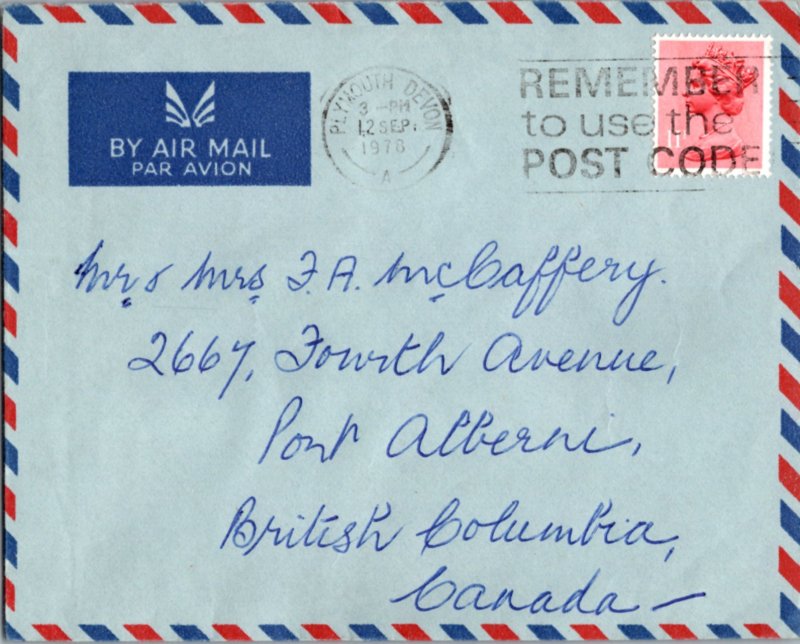 BY AIR MAIL
PAR AVION
PLYMOUTH DEVON
3 -PM
12 SEP
1978
A
REMEMBER
to use the
POST CODE
Mr & Mrs F. A. McCaffery.
2667, Fourth Avenue,
Port Alberni,
British Columbia,
Canada —